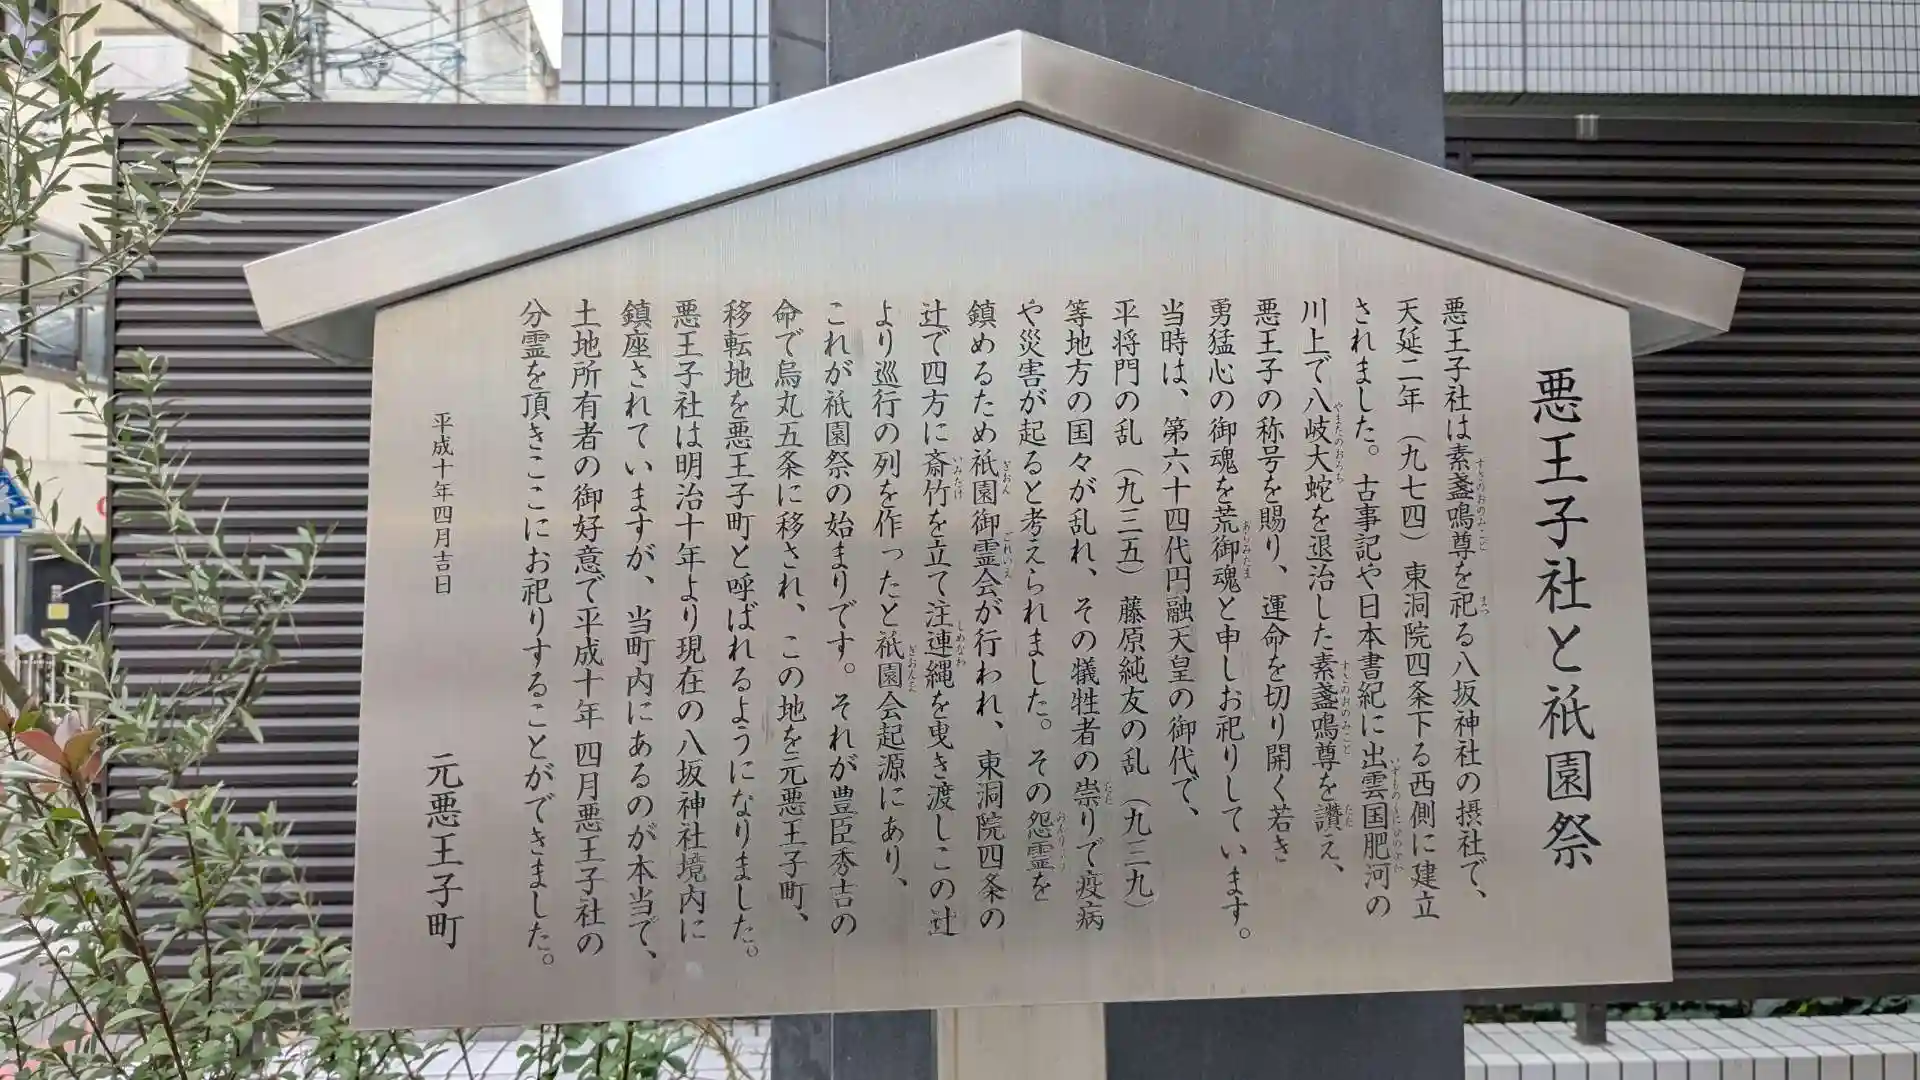 悪王子社と祇園祭
悪王子社は素盞鳴尊を祀る八坂神社の摂社で、
天延二年（九七四）東洞院四条下る西側に建立
されました。古事記や日本書紀に出雲国肥河の
川上で八岐大蛇を退治した素盞鳴尊を讃え、
悪王子の称号を賜り、運命を切り開く若き
勇猛心の御魂を荒御魂と申しお祀りしています。
当時は、第六十四代円融天皇の御代で、
平将門の乱（九三五）藤原純友の乱（九三九）
等地方の国々が乱れ、その犠牲者の祟りで疫病
や災害が起ると考えられました。その怨霊を
鎮めるため祇園御霊会が行われ、東洞院四条の
辻で四方に斎竹を立て注連縄を曳き渡しこの辻
より巡行の列を作ったと祇園会起源にあり、
これが祇園祭の始まりです。それが豊臣秀吉の
命で烏丸五条に移され、この地を元悪王子町、
移転地を悪王子町と呼ばれるようになりました。
悪王子社は明治十年より現在の八坂神社境内に
鎮座されていますが、当町内にあるのが本当で、
土地所有者の御好意で平成十年四月悪王子社の
分霊を頂きここにお祀りすることができました。
平成十年四月吉日
元悪王子町